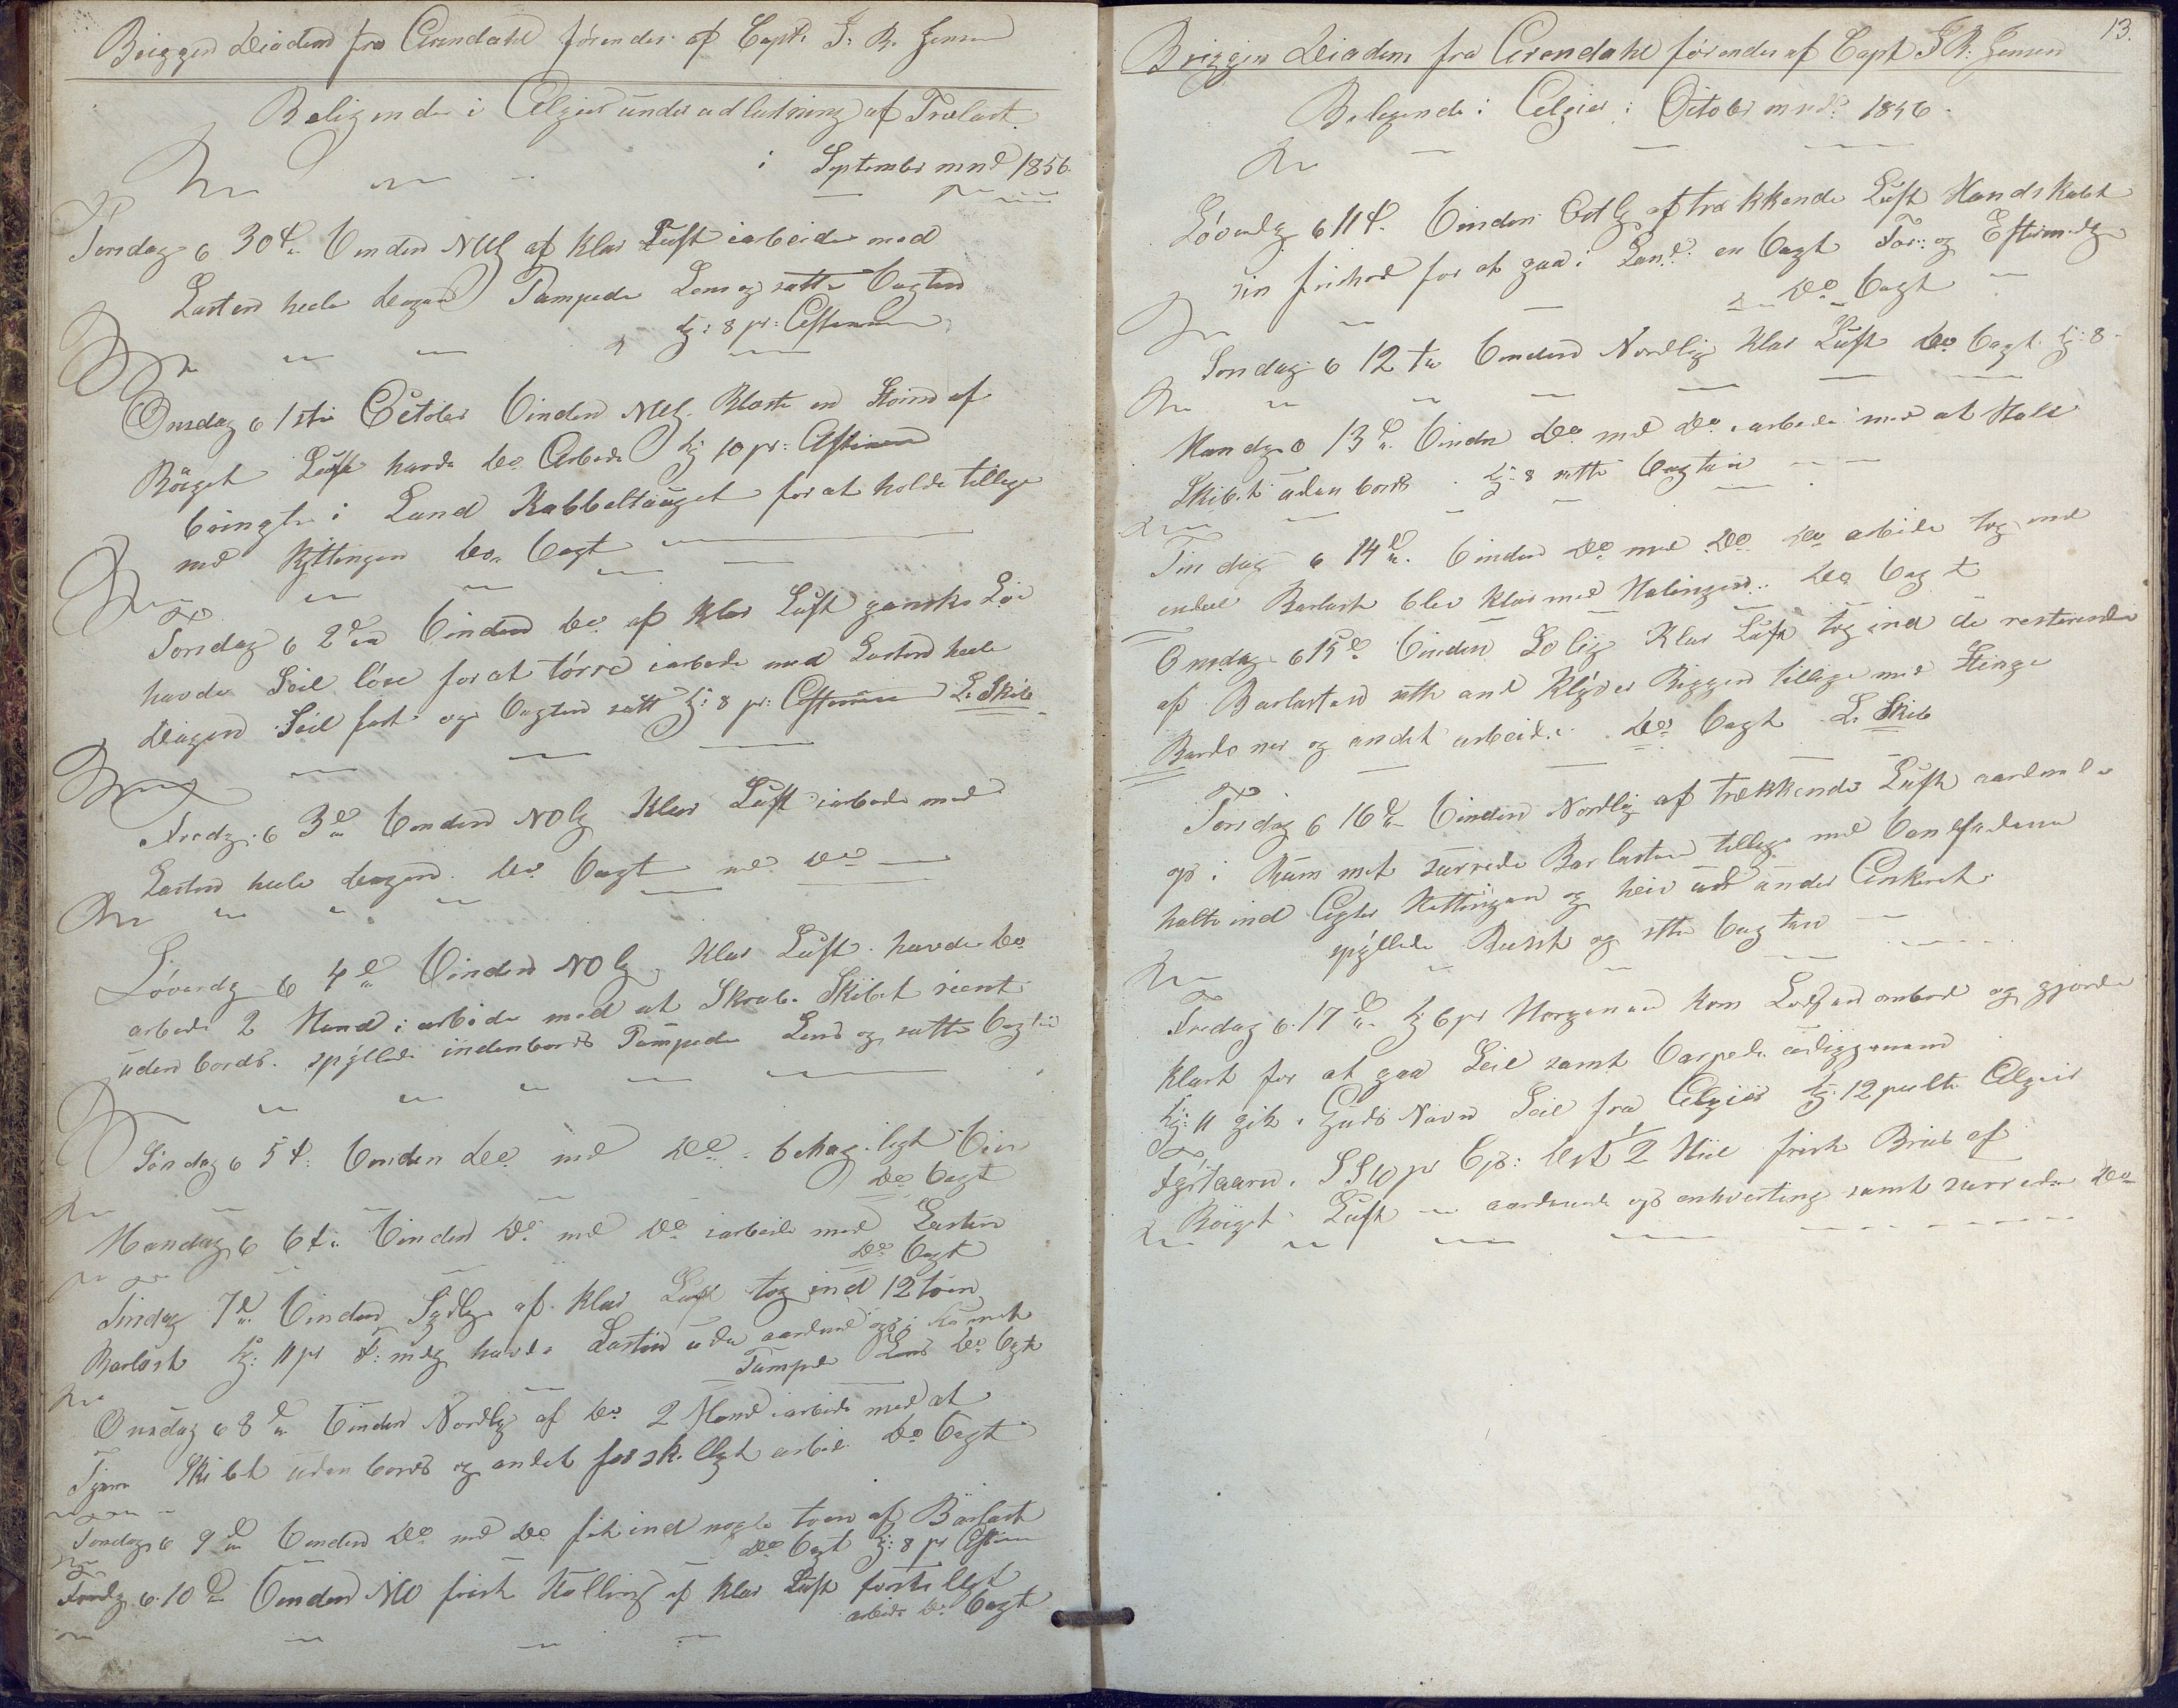 Briggen Diadem fra Arendahl førendes af Capt. J. R. Jensen
Beligende i Algier under udlastning af Trælast
i September mnd 1856.
Tirsdag d 30te Vinden NNlg af klar Luft iarbeide med
Lasten heele dagen Pompede Lens og satte Vagten
Kl: 8 pr: Eftermm
Onsdag d 1ste October Vinden Nlg. Blæste en Storm af
Bøiget Luft havde do Arbeide Kl 10 pr: Efterm
bringte i Land Kabbeltouget for at holde tillige
med Kjttingen do Vagt
Torsdag d 2den Vinden do af klar Luft ganske Løi
havde Seil løse for at tørre iarbeide med Lasten heele
dagen Seil fast og Vagten satt Kl: 8 pr: Eftermm L. Skib
Fredg: d 3de Vinden NOlg Klar Luft iarbeide med
Lasten heele dagen. do Vagt med do
Løverdg d 4de Vinden NOlg Klar Luft. havde do
arbeide 2 Mand i arbeide med at Skrabe Skibet reent
uden bords. spÿllede indenbords Pompede Lens og satte Vagten
Søndag d 5te Vinden do med do behageligt Veir
do Vagt
Mandag d 6te Vinden do med do iarbeide med Lasten
do Vagt
Tirsdag 7de Vinden Sydlg af klar Luft tog ind 12 toen
Barlast Kl: 11 pr F:mdg havde Lasten ude aardnede op i Rummet
Pompede Lens do Vagt
Onsdag d 8de Vinden Nordlg af do 2 Mand iarbeide med at
Tjære Skibet uden bords og andet forskelligt arbeid do Vagt
Torsdag d 9de Vinden do med do fik ind nogle toen af Barlast
do Vagt Kl: 8 pr Efterm
Fredg d 10de Vinden NO frisk Kulling af klar Luft forskelligt
arbeide do Vagt
13.
Briggen Diadem fra Arendahl førendes af Capt J R: Jensen
Beligende i Algier i October mnd: 1856
Løverdg d 11te Vinden Ostlg af trækkende Luft Mandskabet
sin frihed for at gaa i Land en Vagt For: og Eftermdg
do Vagt
Søndag d 12te Vinden Nordlig Klar Luft do Vagt Kl: 8
Mandg d 13de Vinden do med do iarbeide med at Male
Skibet uden bords Kl: 8 satte Vagten
Tirsdag d 14de Vinden do med do do arbeide tog ind
endeel Barlast blev klar med Malingen do Vagt
Onsdag d 15de Vinden Solig Klar Luft tog ind de resterende
af Barlasten satte and Klÿver Riggen tillige med Stænge
Barduner og andet arbeide. do Vagt L. Skib
Torsdag d 16de Vinden Nordlg af trækkende Luft aardnede
op i Rummet surrede Barlasten tillige med Vandfadene
halte ind Agter Kettingen og heiv under Ankeret
spÿllede Dæck og satte Vagten
Fredag d. 17de Kl 6 pr Morgenen kom Lodsen ombord og gjorde
klart for at gaa Seil samt Varpede
Kl: 11 gik i Guds Navn Seil fra Algier Kl: 12 peilte Algier
Fÿrtaarn. S S W pr Cps: Dst 2 Miil frisk Bris af
Bøiget Luft aardnede op enhverting samt surrede do